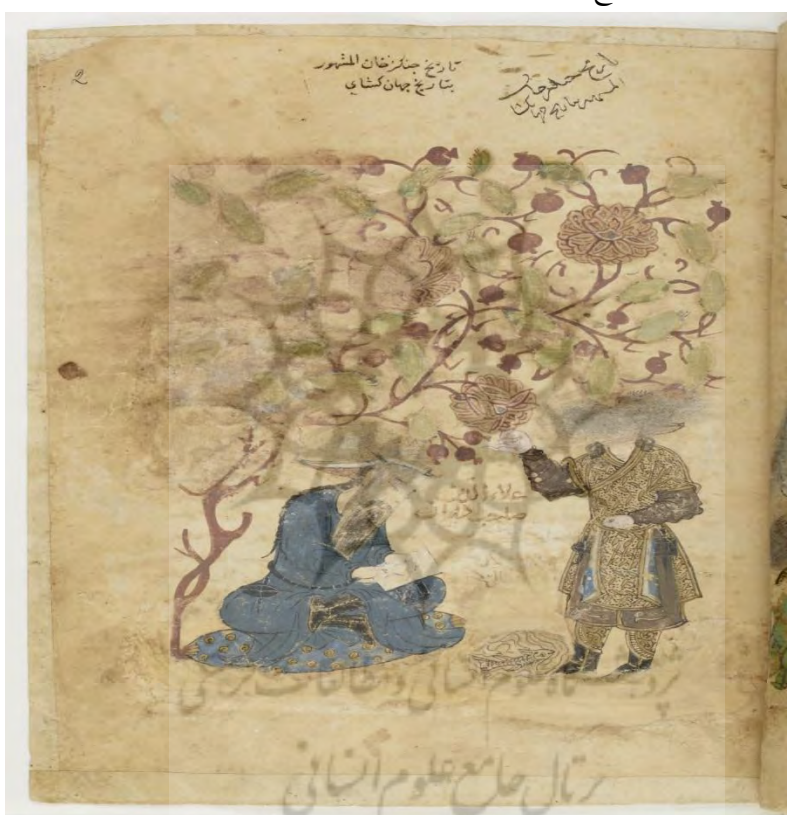 تاريخ جنكزخان المشهور
بتاريخ جهان كشاي
2
علاء الدين
صاحب ديوان
پژوهشگاه علوم انسانی و مطالعات فرهنگی
پرتال جامع علوم انسانی